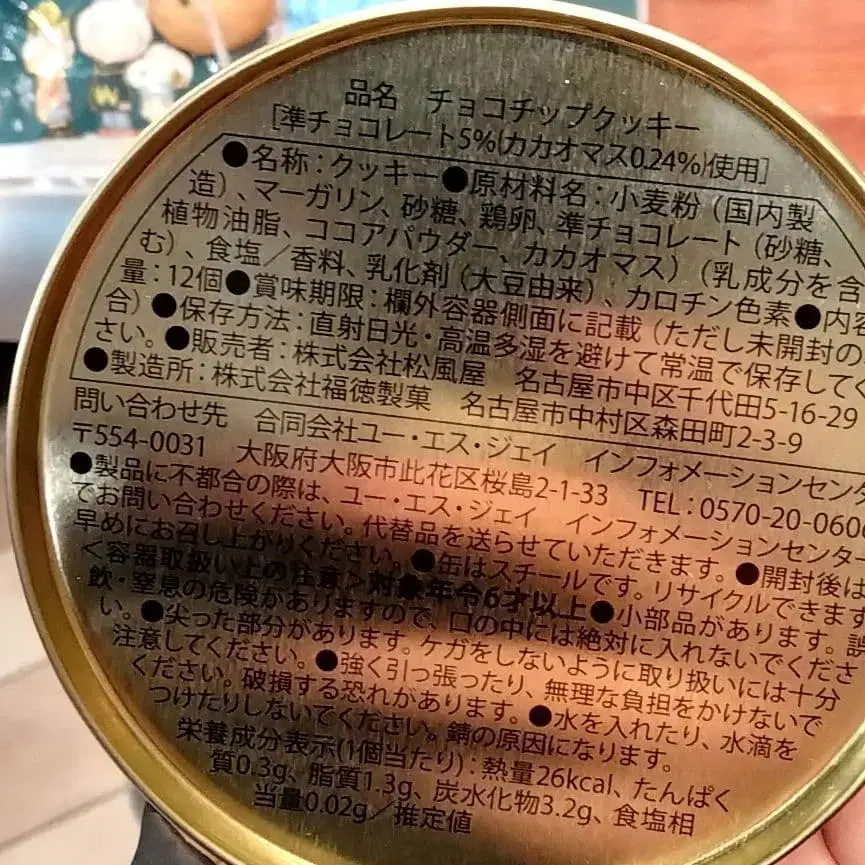 品名 チョコチップクッキー
[準チョコレート5%(カカオマス0.24%)使用]
●名称：クッキー●原材料名：小麦粉（国内製
造）、マーガリン、砂糖、鶏卵、準チョコレート（砂糖、
植物油脂、ココアパウダー、カカオマス）（乳成分を含
む）、食塩／香料、乳化剤（大豆由来）、カロチン色素●内容
量：12個●賞味期限：欄外容器側面に記載（ただし未開封の
合）●保存方法：直射日光・高温多湿を避けて常温で保存してく
さい。●販売者：株式会社松風屋 名古屋市中区千代田5-16-29
●製造所：株式会社福徳製菓 名古屋市中村区森田町2-3-9
問い合わせ先 合同会社ユー・エス・ジェイ インフォメーションセンタ
〒554-0031 大阪府大阪市此花区桜島2-1-33 TEL：0570-20-060
●製品に不都合の際は、ユー・エス・ジェイ インフォメーションセンター
でお問い合わせください。代替品を送らせていただきます。●開封後は
早めにお召し上がりください。●缶はスチールです。リサイクルできます
＜容器取扱い上の注意＞対象年令6才以上●小部品があります。誤
飲・窒息の危険がありますので、口の中には絶対に入れないでくださ
い。●尖った部分があります。ケガをしないように取り扱いには十分
注意してください。●強く引っ張ったり、無理な負担をかけないで
ください。破損する恐れがあります。●水を入れたり、水滴を
つけたりしないでください。錆の原因になります。
栄養成分表示(1個当たり)：熱量26kcal、たんぱく
質0.3g、脂質1.3g、炭水化物3.2g、食塩相
当量0.02g／推定値